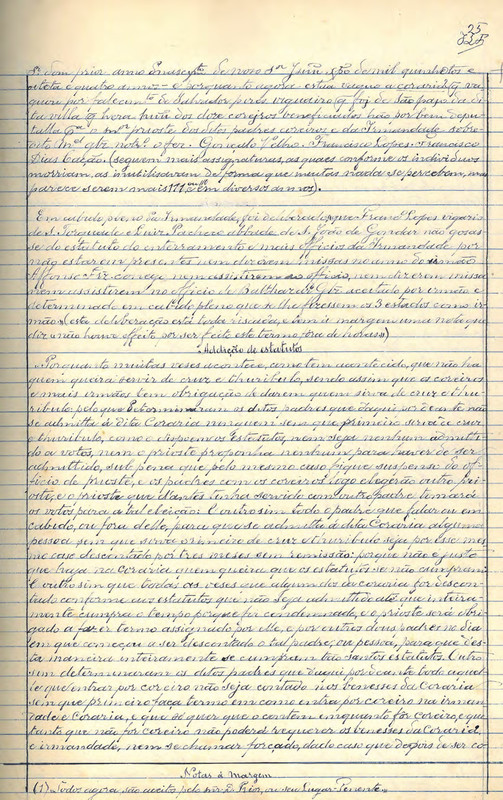 25
S.ʳ dom prior anno do nascym.ᵗᵒ de nosso s.ᵒʳ Jesus de mil quinhentos e
oitenta e quatro annos = e porquanto agora estia vagua a coraria
por falecim.ᵗᵒ de Salvador pires vigueiro q foi de São paio da di-
ta villa hora hum dos doze coreyros beneficiados hão por bem
o m.ᵒʳ prioste dos ditos padres coreiros e da Irmandade sobre-
Gonçalo V. Francisco Lopes = Francisco
Dias Cação. (seguem mais assignaturas, as quaes conforme os individuos
morriam, as inutilisavam de forma que muitas nada se percebem, mas
parece serem mais 111 em diversos annos).
Em cabido pleno da Irmandade, foi deliberado que Franc.ᵒ Lopes vigario
de S. Torquade e Luiz Pacheco abbade de S. João de Gondar não gosas-
se do estatuto do enterramento e mais officios da Irmandade por
não estarem presentes nem dizerem missas no anno do irmão
Affonso conego nem assistirem ao officio, nem dizerem missa
nem assistirem no officio de Balthazar Glz aceitado por irmão e
determinado em cabido pleno que se lhe fizessem os 3 estados como ir-
mão (esta deliberação está toda riscada, e tem á margem uma nota que
diz = não houve effeito por ser feito este termo fora de horas =)
= Addição de estatutos
= Porquanto muitas veses acontece, como tem acontecido, que não ha
quem queira servir de cruz e thuribulo, sendo assim que os coreiros
e mais irmãos tem obrigação de darem quem sirva de cruz e thu-
ribulo pelo que determinaram os ditos padres que daqui por diante não
se admitta á dita Coraria ninguem sem que primeiro sirva de cruz
e thuribulo, como o dispoem os Estatutos, nem seja nenhum admitti-
do a votos, nem o prioste proponha nenhum para haver de ser
admittido, sub pena que pelo mesmo caso fique suspenso do of-
ficio de prioste, e os padres com os coreiros logo elegerão outro prios-
te, e o prioste que d'antes tinha servido com outro padre tomará
os votos para a tal eleição: E outro sim todo o padre que falar ou em
cabido, ou fora delle, para que se admitta á dita Coraria alguma
pessoa sem que sirva primeiro de cruz e thuribulo seja por esse mes-
mo caso descontado por tres meses sem remissão: porque não é justo
que haja na Coraria quem queira que os estatutos se não cumpram.
E outro sim que todas as veses que algum dos da coraria for descon-
tado conforme aos estatutos, que não seja admittido até que inteira-
mente cumpra o tempo porque for condemnado, e o prioste será obri-
gado a fazer termo assignado por elle, e por outros dous padres no dia
em que começou a ser descontado o tal padre, ou pessoa, para que des-
ta maneira inteiramente se cumpram tão santos estatutos. Outro
sim determinaram os ditos padres que daqui por diante todo aquel-
le que entrar por coreiro não seja contado nos benesses da Coraria
sem que primeiro faça termo em como entra por coreiro na irman-
dade e Coraria, e que só quer que o contem enquanto for coreiro, e que
tanto que não for coreiro não poderá requerer os benesses da Coraria
e irmandade, nem se chamar forçado, dado caso que depois de ser co-
Notas á margem
(1) Todos agora são aceitos pelo snr. D. Prior, ou seu Lugar-Tenente.